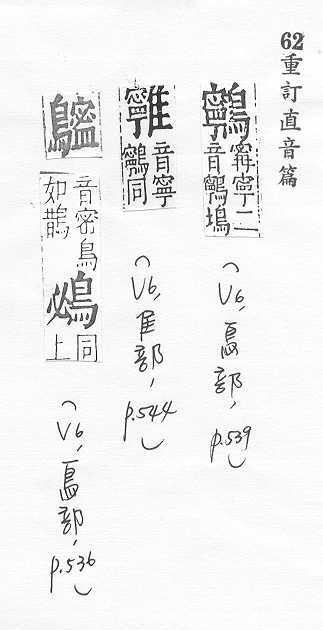 62重訂直音篇
鸋 寧二音鸋
(V6, 鳥部, p.539)
音寧鸋同
(V6, 隹部, p.544)
音密鳥如鵲 同上
(V6, 鳥部, p.536)